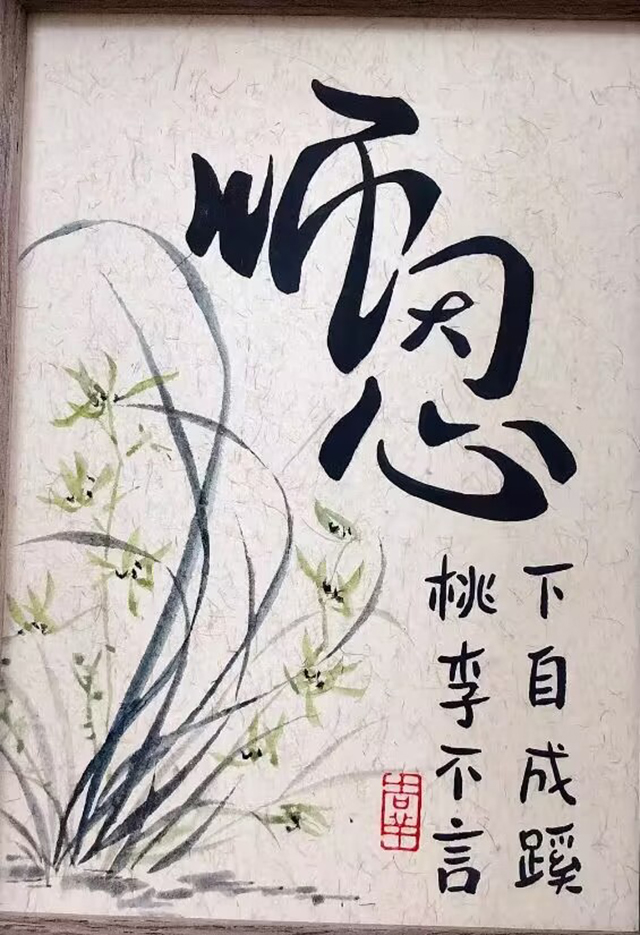 师恩
桃李不言
下自成蹊